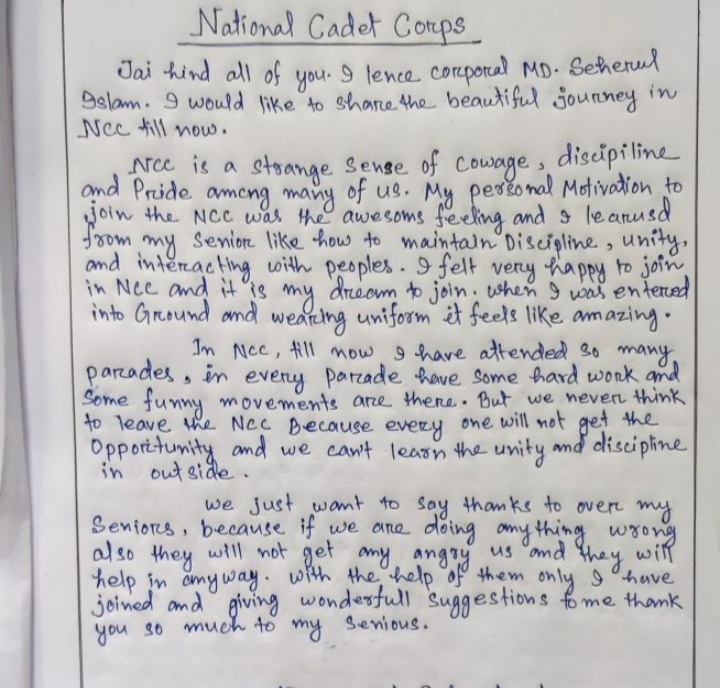 National Cadet Corps
Jai hind all of you. I lence corporal MD. Seherul
Islam. I would like to share the beautiful journey in
Ncc till now.
Ncc is a strange sense of cowage, discipiline
and Pride among many of us. My personal Motivation to
join the NCC was the awesoms feeling and I learnsd
from my senior like how to maintain Discipline, unity,
and interacting with peoples. I felt very happy to join
in Ncc and it is my dream to join. when I was entered
into Ground and wearing uniform it feels like amazing.
In Ncc, till now I have attended so many
parades, in every parade have some hard work and
Some funny movements are there. But we never think
to leave the NCC Because every one will not get the
Opportunity and we can't learn the unity and discipline
in out side.
we just want to say thanks to over my
Seniors, because if we are doing anything wrong
also they will not get any angry us and they will
help in anyway. with the help of them only I have
joined and giving wonderfull suggestions to me thank
you so much to my senious.